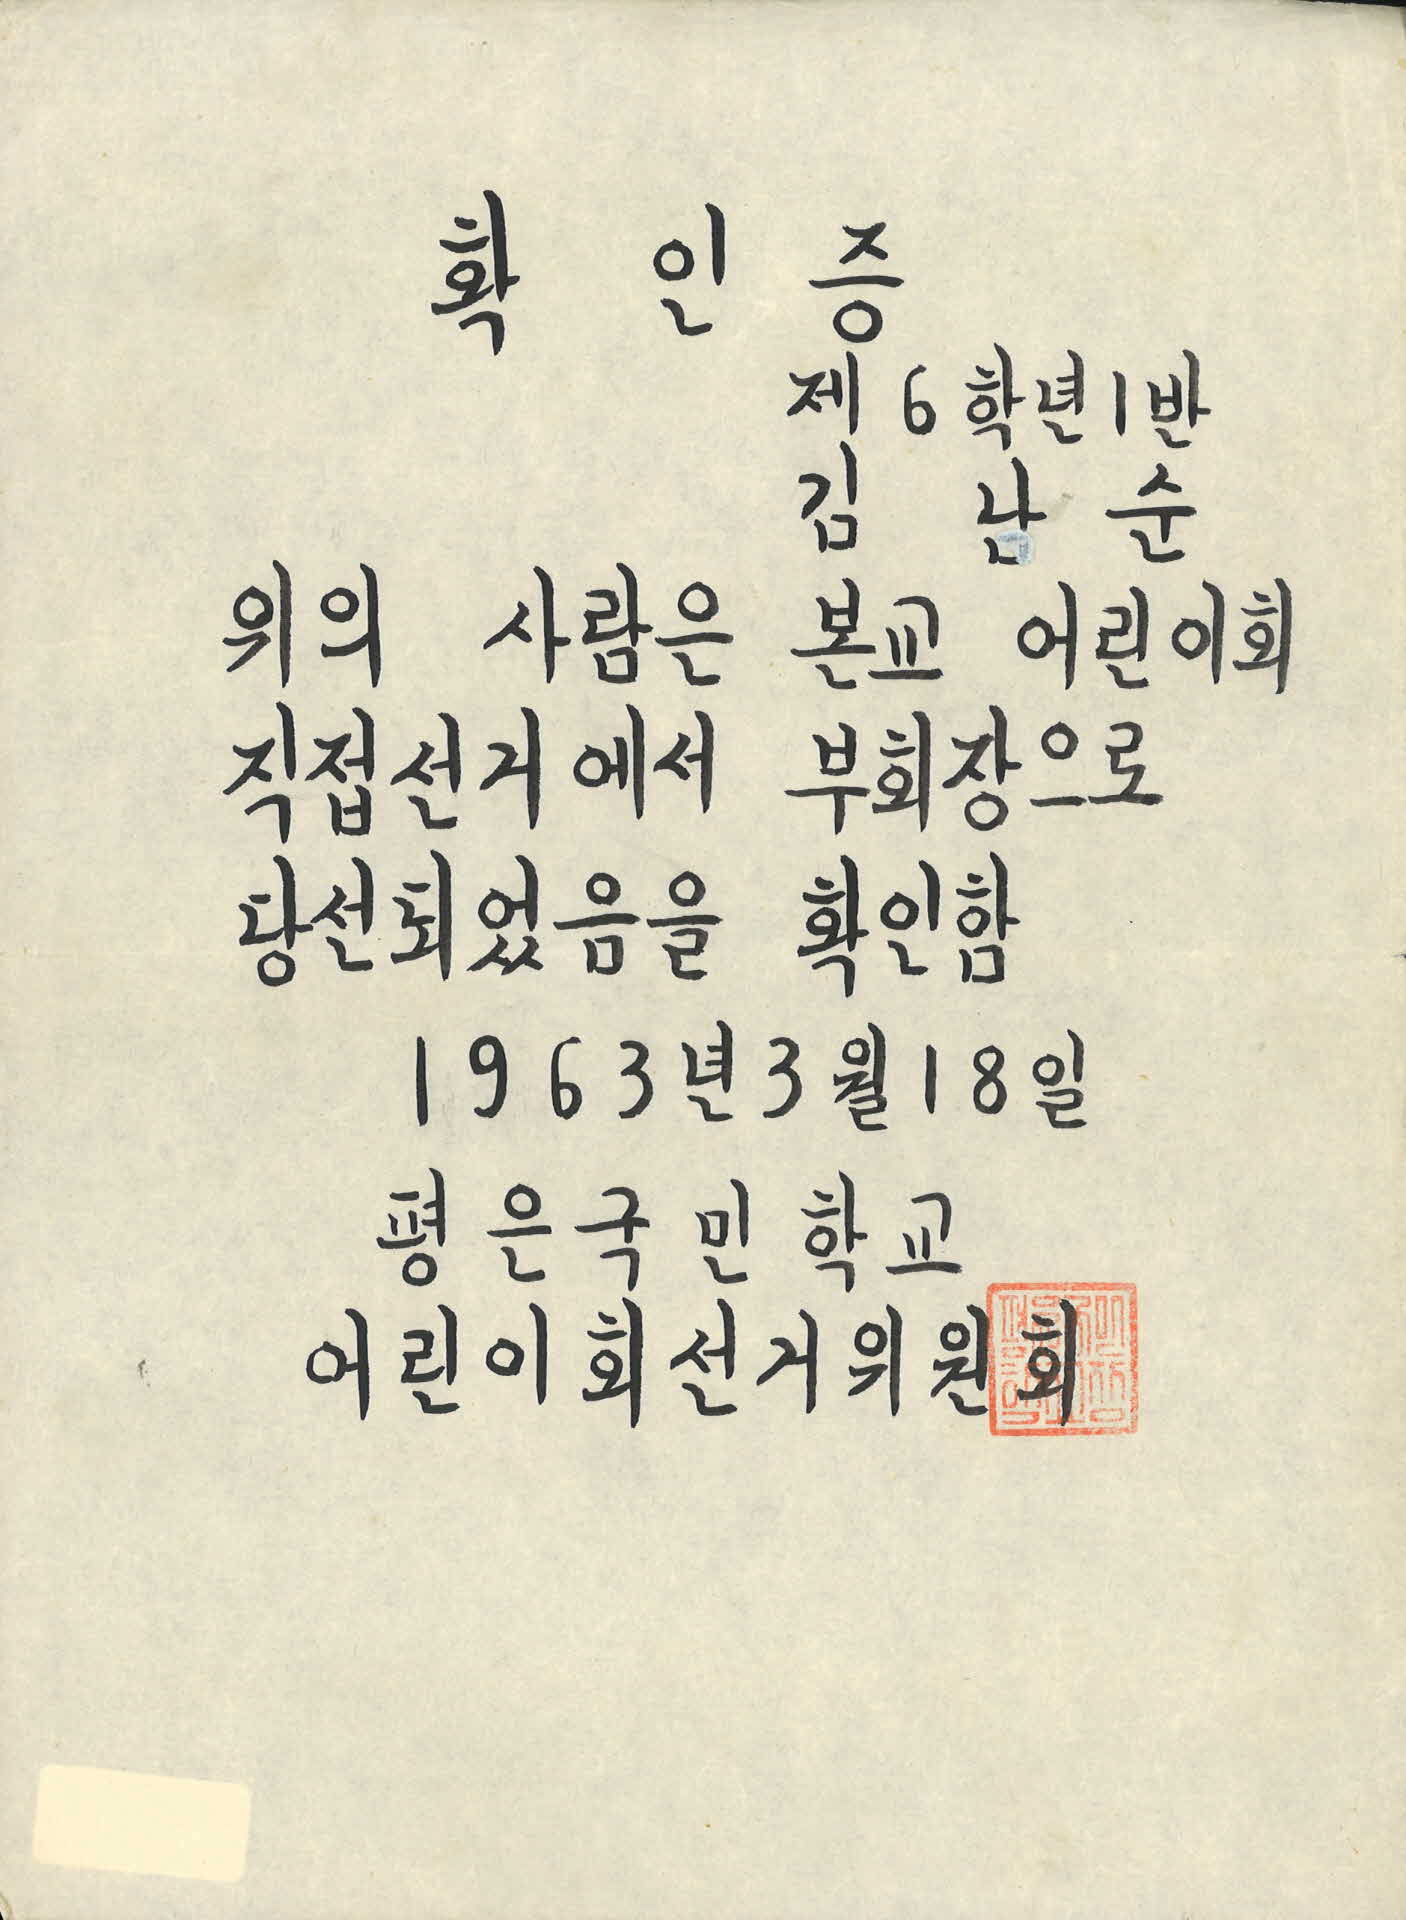 확 인 증
제 6 학년 1 반
김 남 순
위의 사람은 본교 어린이회
직접선거에서 부회장으로
당선되었음을 확인함
1963년 3월 18일
평은국민학교
어린이회선거위원회